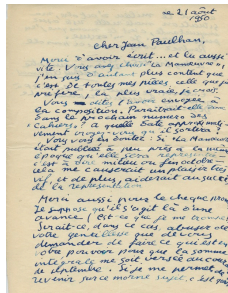 ce 21 août
1950
Cher Jean Paulhan,
Merci d'avoir écrit... et lu aussi
vite. Vous avez choisi la Manœuvre,
j'en suis d'autant plus content que
c'est de toutes mes pièces celle que
je préfère, la plus vraie, je crois.
Vous dites l'avoir envoyée à
la composition. Paraîtrait-elle dans
le prochain numéro des
Cahiers? à quelle date approximati-
vement croyez-vous qu'il sortira
la Manœuvre
était publié à peu près à la même
époque qu'elle sera représentée
c'est à dire milieu ou fin octobre
cela me causerait un plaisir très
vif, et de plus, aiderait au succès
de la représentation
Merci aussi pour le chèque
Je suppose qu'il s'agit là d'une
avance
Serait-ce, dans ce cas, abuser de
votre gentillesse que de vous
demander de faire ce qui est en
votre pouvoir pour que la somme
intégrale me soit versée au cours
de septembre. Si je me permets de
revenir